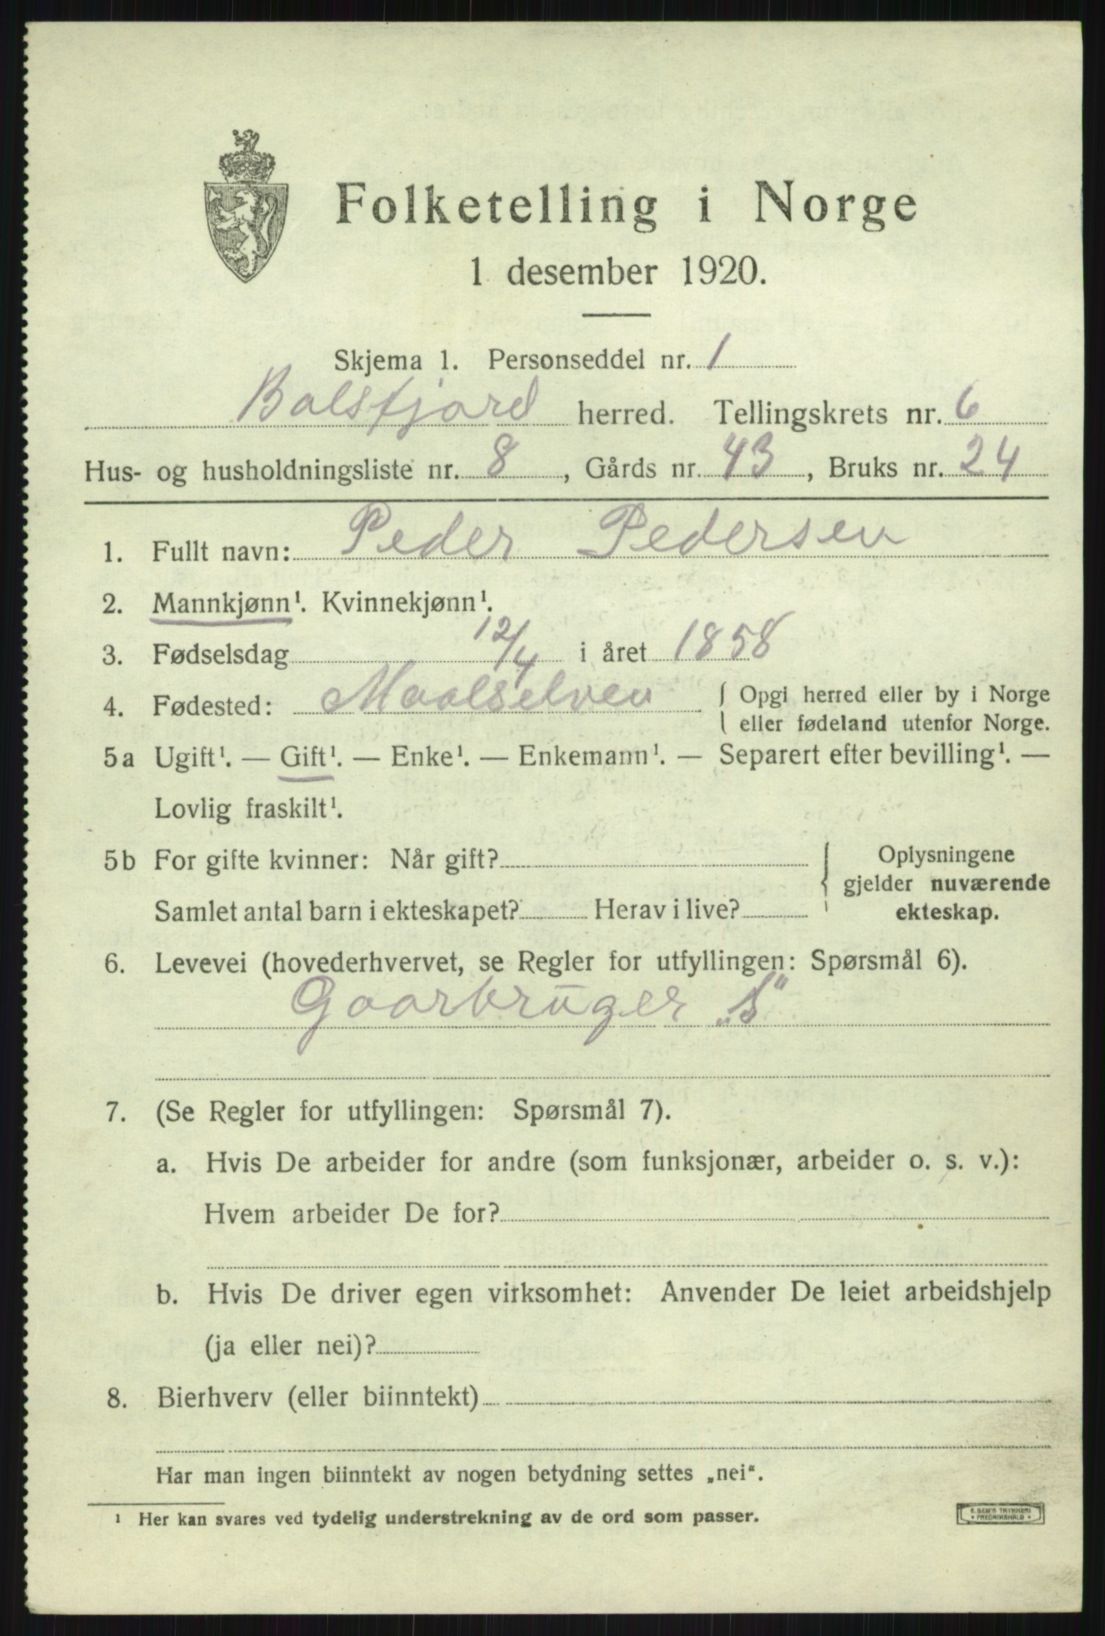 Folketelling i Norge
1 desember 1920.
Skjema 1. Personseddel nr. 1
Balsfjord herred. Tellingskrets nr. 6
Hus- og husholdningsliste nr. 8, Gårds nr. 43, Bruks nr. 24
1. Fullt navn: Peder Pedersen
2. Mannkjønn¹. Kvinnekjønn¹.
3. Fødselsdag 12/4 i året 1858
4. Fødested: Maalselven { Opgi herred eller by i Norge
eller fødeland utenfor Norge.
5a Ugift¹. — Gift¹. — Enke¹. — Enkemann¹. — Separert efter bevilling¹. —
Lovlig fraskilt¹.
5b For gifte kvinner: Når gift? { Oplysningene
gjelder nuværende
Samlet antal barn i ekteskapet? Herav i live? ekteskap.
6. Levevei (hovederhvervet, se Regler for utfyllingen: Spørsmål 6).
Gaarbruger „S"
7. (Se Regler for utfyllingen: Spørsmål 7).
a. Hvis De arbeider for andre (som funksjonær, arbeider o. s. v.):
Hvem arbeider De for?
b. Hvis De driver egen virksomhet: Anvender De leiet arbeidshjelp
(ja eller nei)?
8. Bierhverv (eller biinntekt)
Har man ingen biinntekt av nogen betydning settes „nei".
¹ Her kan svares ved tydelig understrekning av de ord som passer.